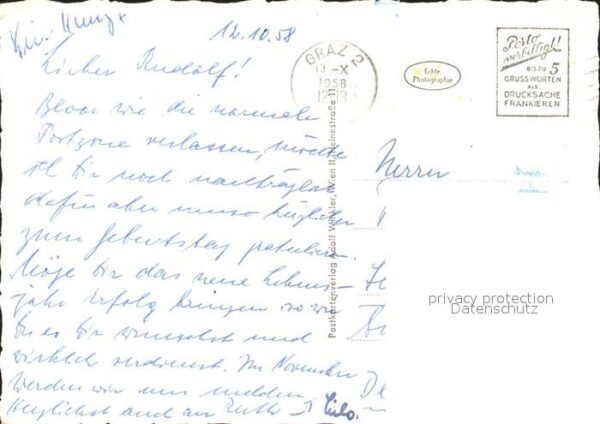 12.10.58
Lieber Rudolf!
Bevor wir die normale
Postzone verlassen, möchte
ich Dir noch nachträglich
dafür aber umso herzlicher
zum Geburtstag gratulieren.
Möge Dir das neue Lebens-
jahr Erfolg bringen so wie
Du es Dir wünschst und
wirklich verdienst. Im November
werden wir uns melden
Herzlichst auch an Ruth
GRAZ 2
13.-X
1958
12-13
Echte
Photographie
Porto
verbilligt!
BIS ZU 5
GRUSSWORTEN
ALS
DRUCKSACHE
FRANKIEREN
Postkartenverlag Adolf Winkler, Wien II, Heinestraße 11
Herrn
privacy protection
Datenschutz